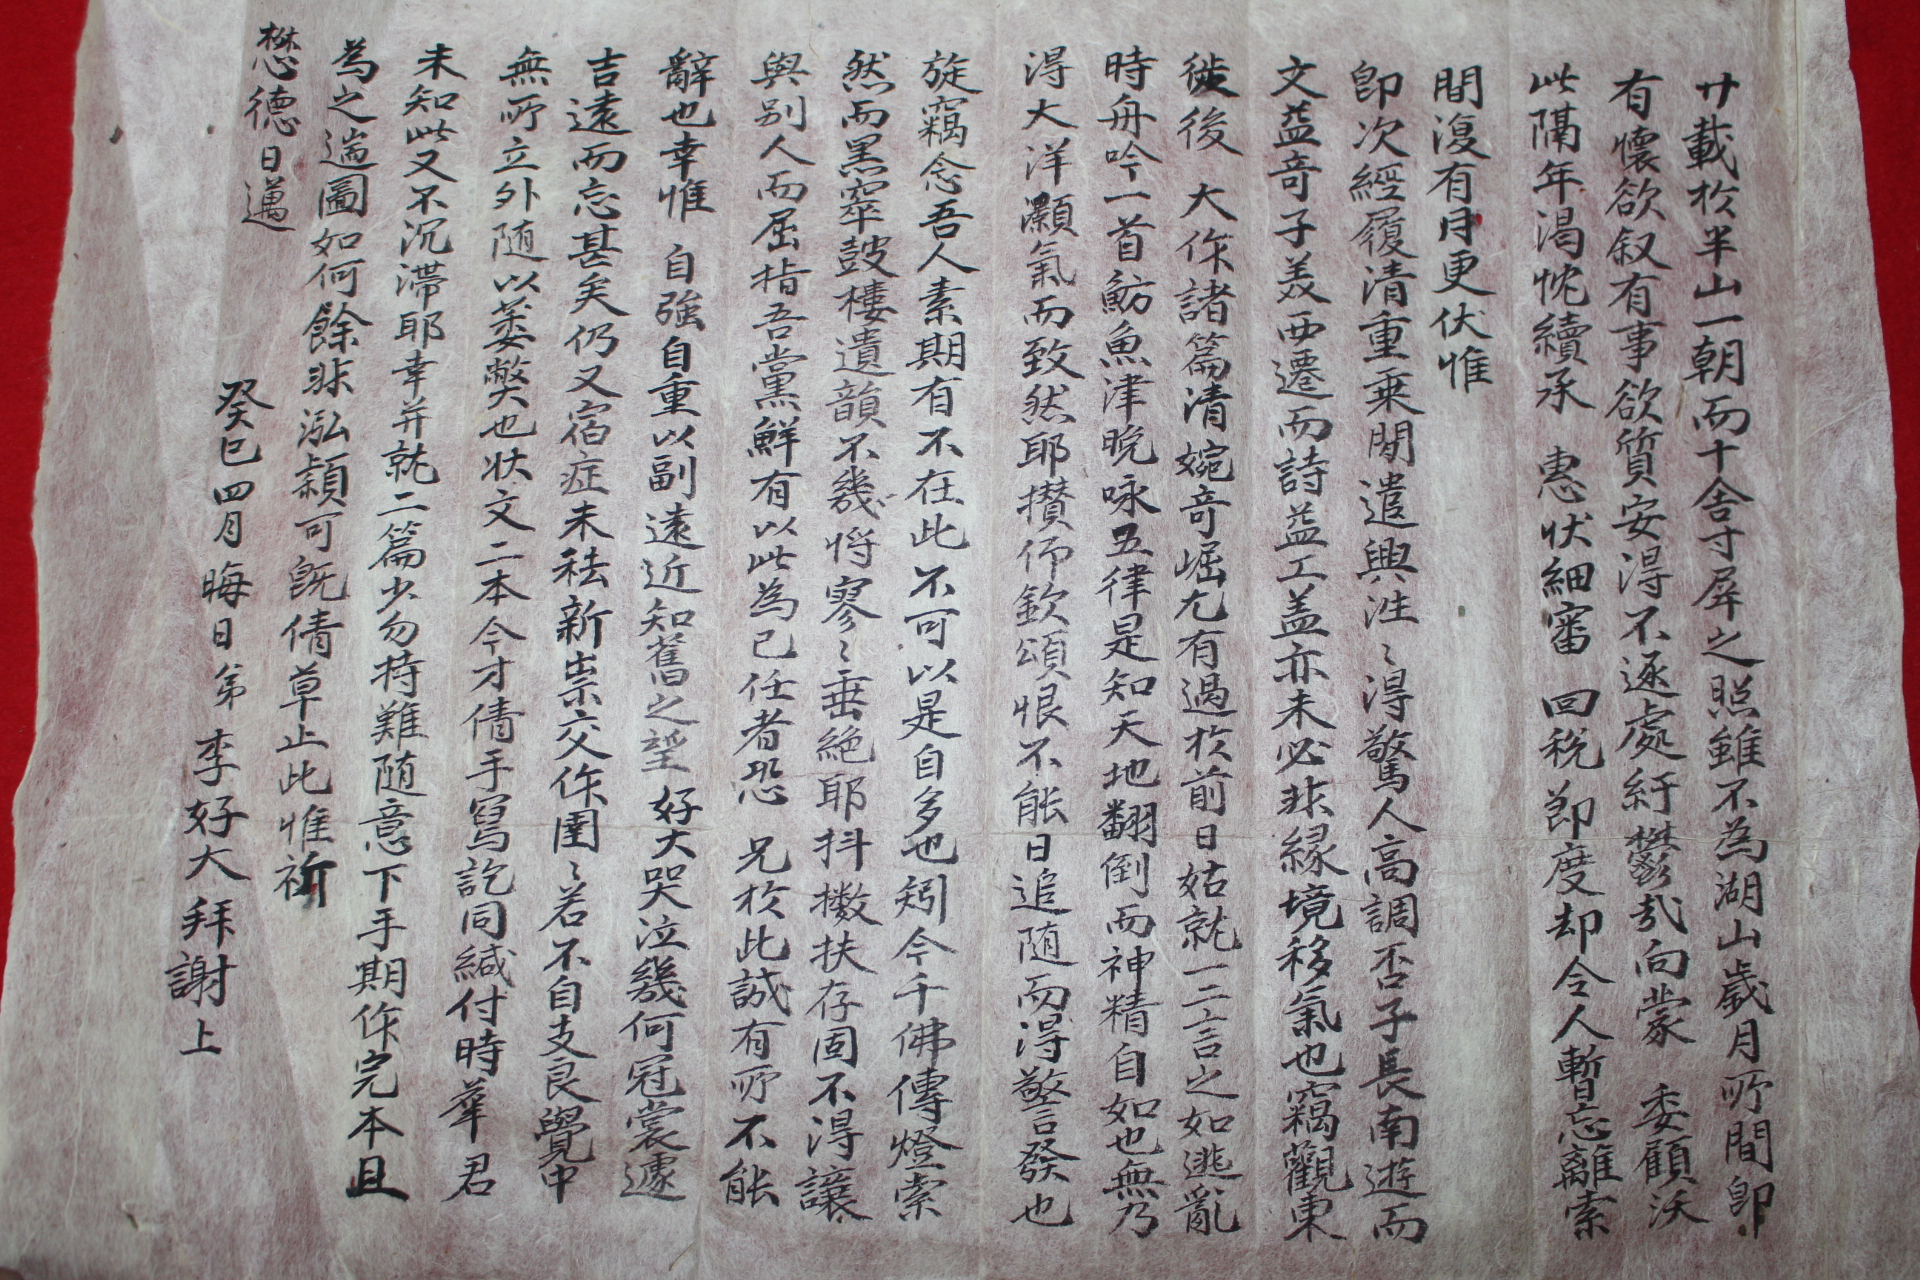 廿載於半山一朝而十舍寸犀之照雖不為湖山歲月所間卽
有懷欲叙有事欲質安得不逐處紆鬱哉向蒙 委顧沃
此隔年渴忱續承 惠狀細審 回稅節度却令人暫忘離索
間復有月更伏惟
卽次經履淸重乘閒遣興泩〻得驚人高調否子長南遊而
文益奇子美西遷而詩益工盖亦未必非緣境移氣也竊觀東
徙後 大作諸篇清婉奇崛尤有過於前日姑就一二言之如逃亂
時舟吟一首魴魚津晩咏五律是知天地翻倒而神精自如也無乃
得大洋灝氣而致然耶攢仰欽頌恨不能日追隨而得警發也
旋竊念吾人素期有不在此不可以是自多也矧今千佛傳燈索
然而黑窣鼓樓遺韻不幾將寥〻垂絶耶抖擻扶存固不得讓
與別人而屈指吾黨鮮有以此為己任者恐 兄於此誠有所不能
辭也幸惟 自強自重以副遠近知舊之望 好大哭泣幾何冠裳遽
吉遠而忘甚矣仍又宿症未祛新祟交作圉〻若不自支良覺中
無所立外随以萎弊也狀文二本今才倩手寫訖同緘付時華君
未知此又不沉滯耶幸并就二篇少勿持難随意下手期作完本且
為之遄圖如何餘非泓潁可旣倩草止此惟祈
懋德日邁
癸巳四月晦日弟 李好大 拜謝上